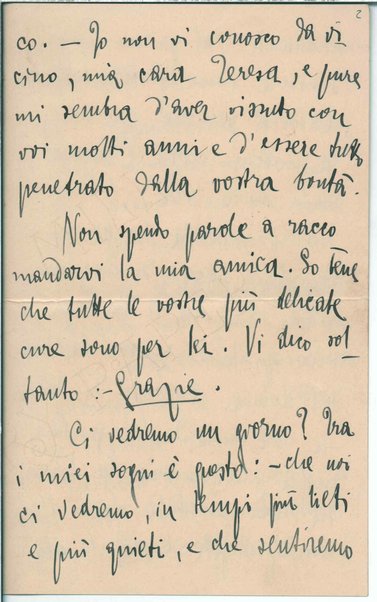 2
co. — Io non vi conosco da vi
cino, mia cara Teresa, e pure
mi sembra d'aver vissuto con
voi molti anni e d'essere tutto
penetrato dalla vostra bontà.
Non spendo parole a racco
mandarvi la mia amica. So bene
che tutte le vostre più delicate
cure sono per lei. Vi dico sol-
tanto: — Grazie.
Ci vedremo un giorno? Tra
i miei sogni è questo: — che noi
ci vedremo, in tempi più lieti
e più quieti, e che sentiremo